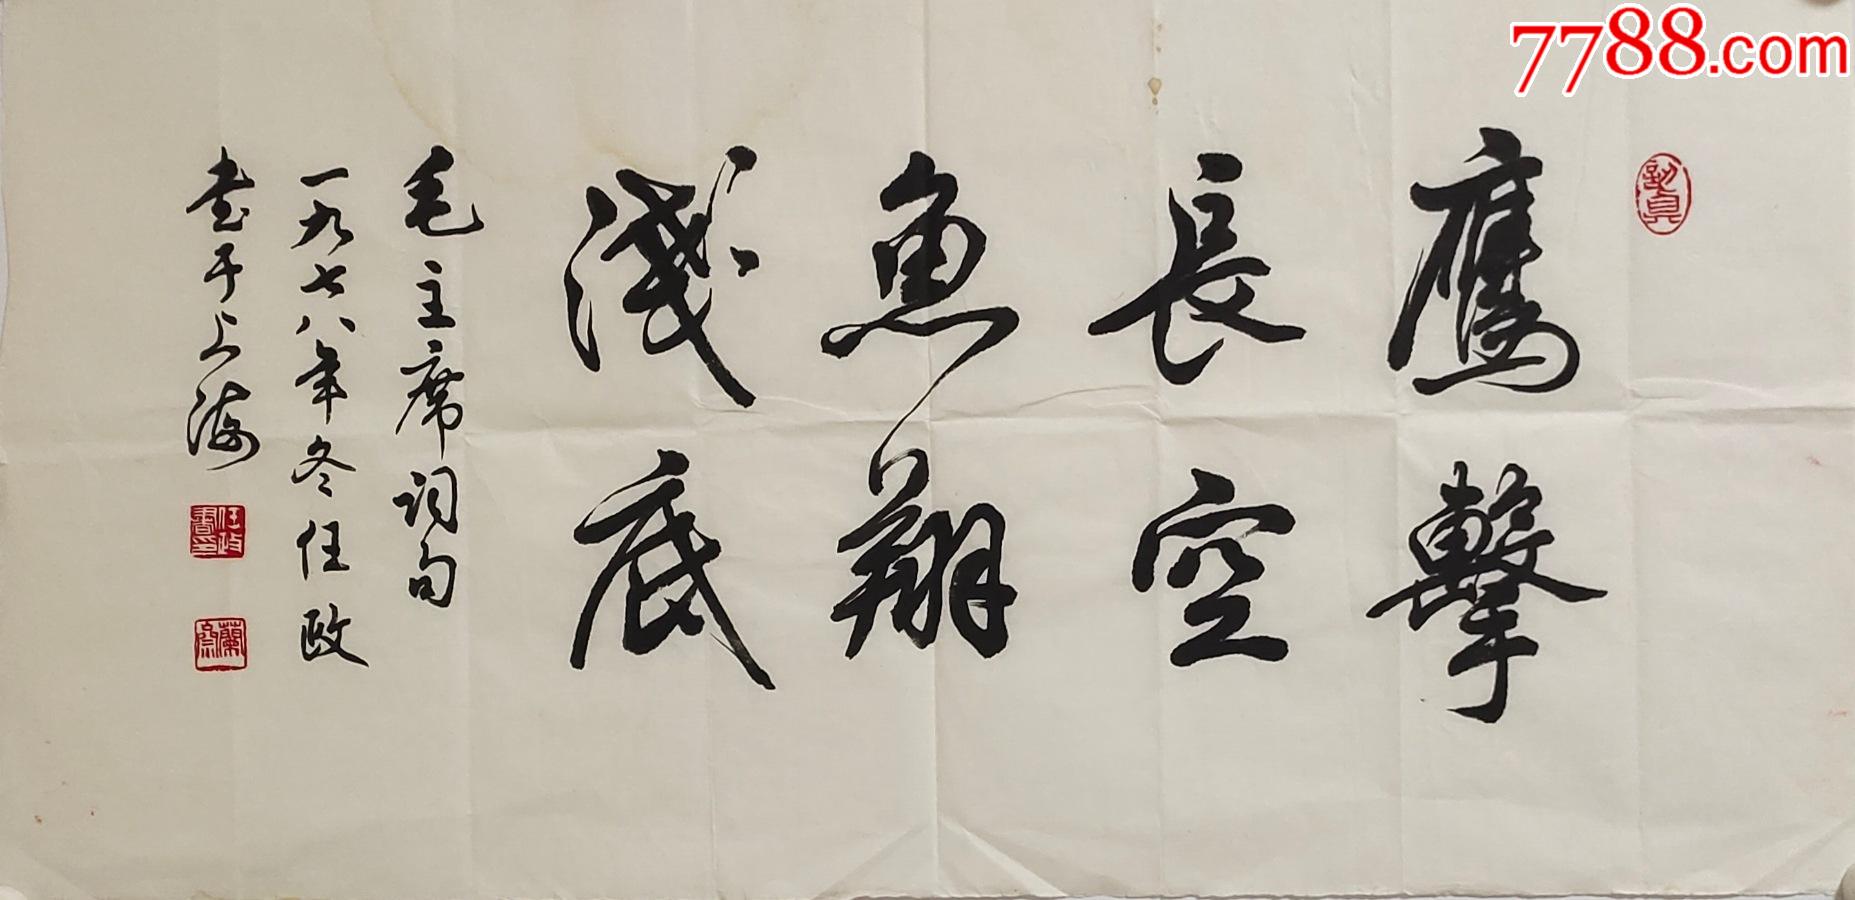 7788.com
鷹擊
長空
魚翔
淺底
毛主席词句
一九七八年冬任政
书于上海
任政
書印
蘭齋